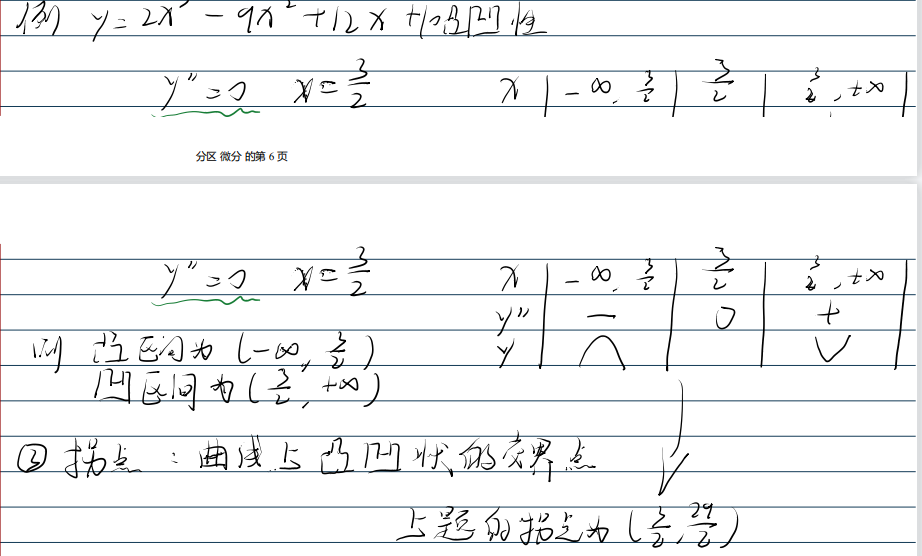 例 y=2x³-9x²+12x+1凸凹性
y''=0 x=3/2 x | -∞, 3/2 | 3/2 | 3/2, +∞ |
分区 微分 的第 6 页
y''=0 x=3/2 x | -∞, 3/2 | 3/2 | 3/2, +∞ |
y'' | - | 0 | + |
则 凸区间为 (-∞, 3/2) y | ⌒ | | ∨ |
凹区间为 (3/2, +∞)
② 拐点:曲线上凸凹状的交界点
上题的拐点为 (3/2, 29/2)